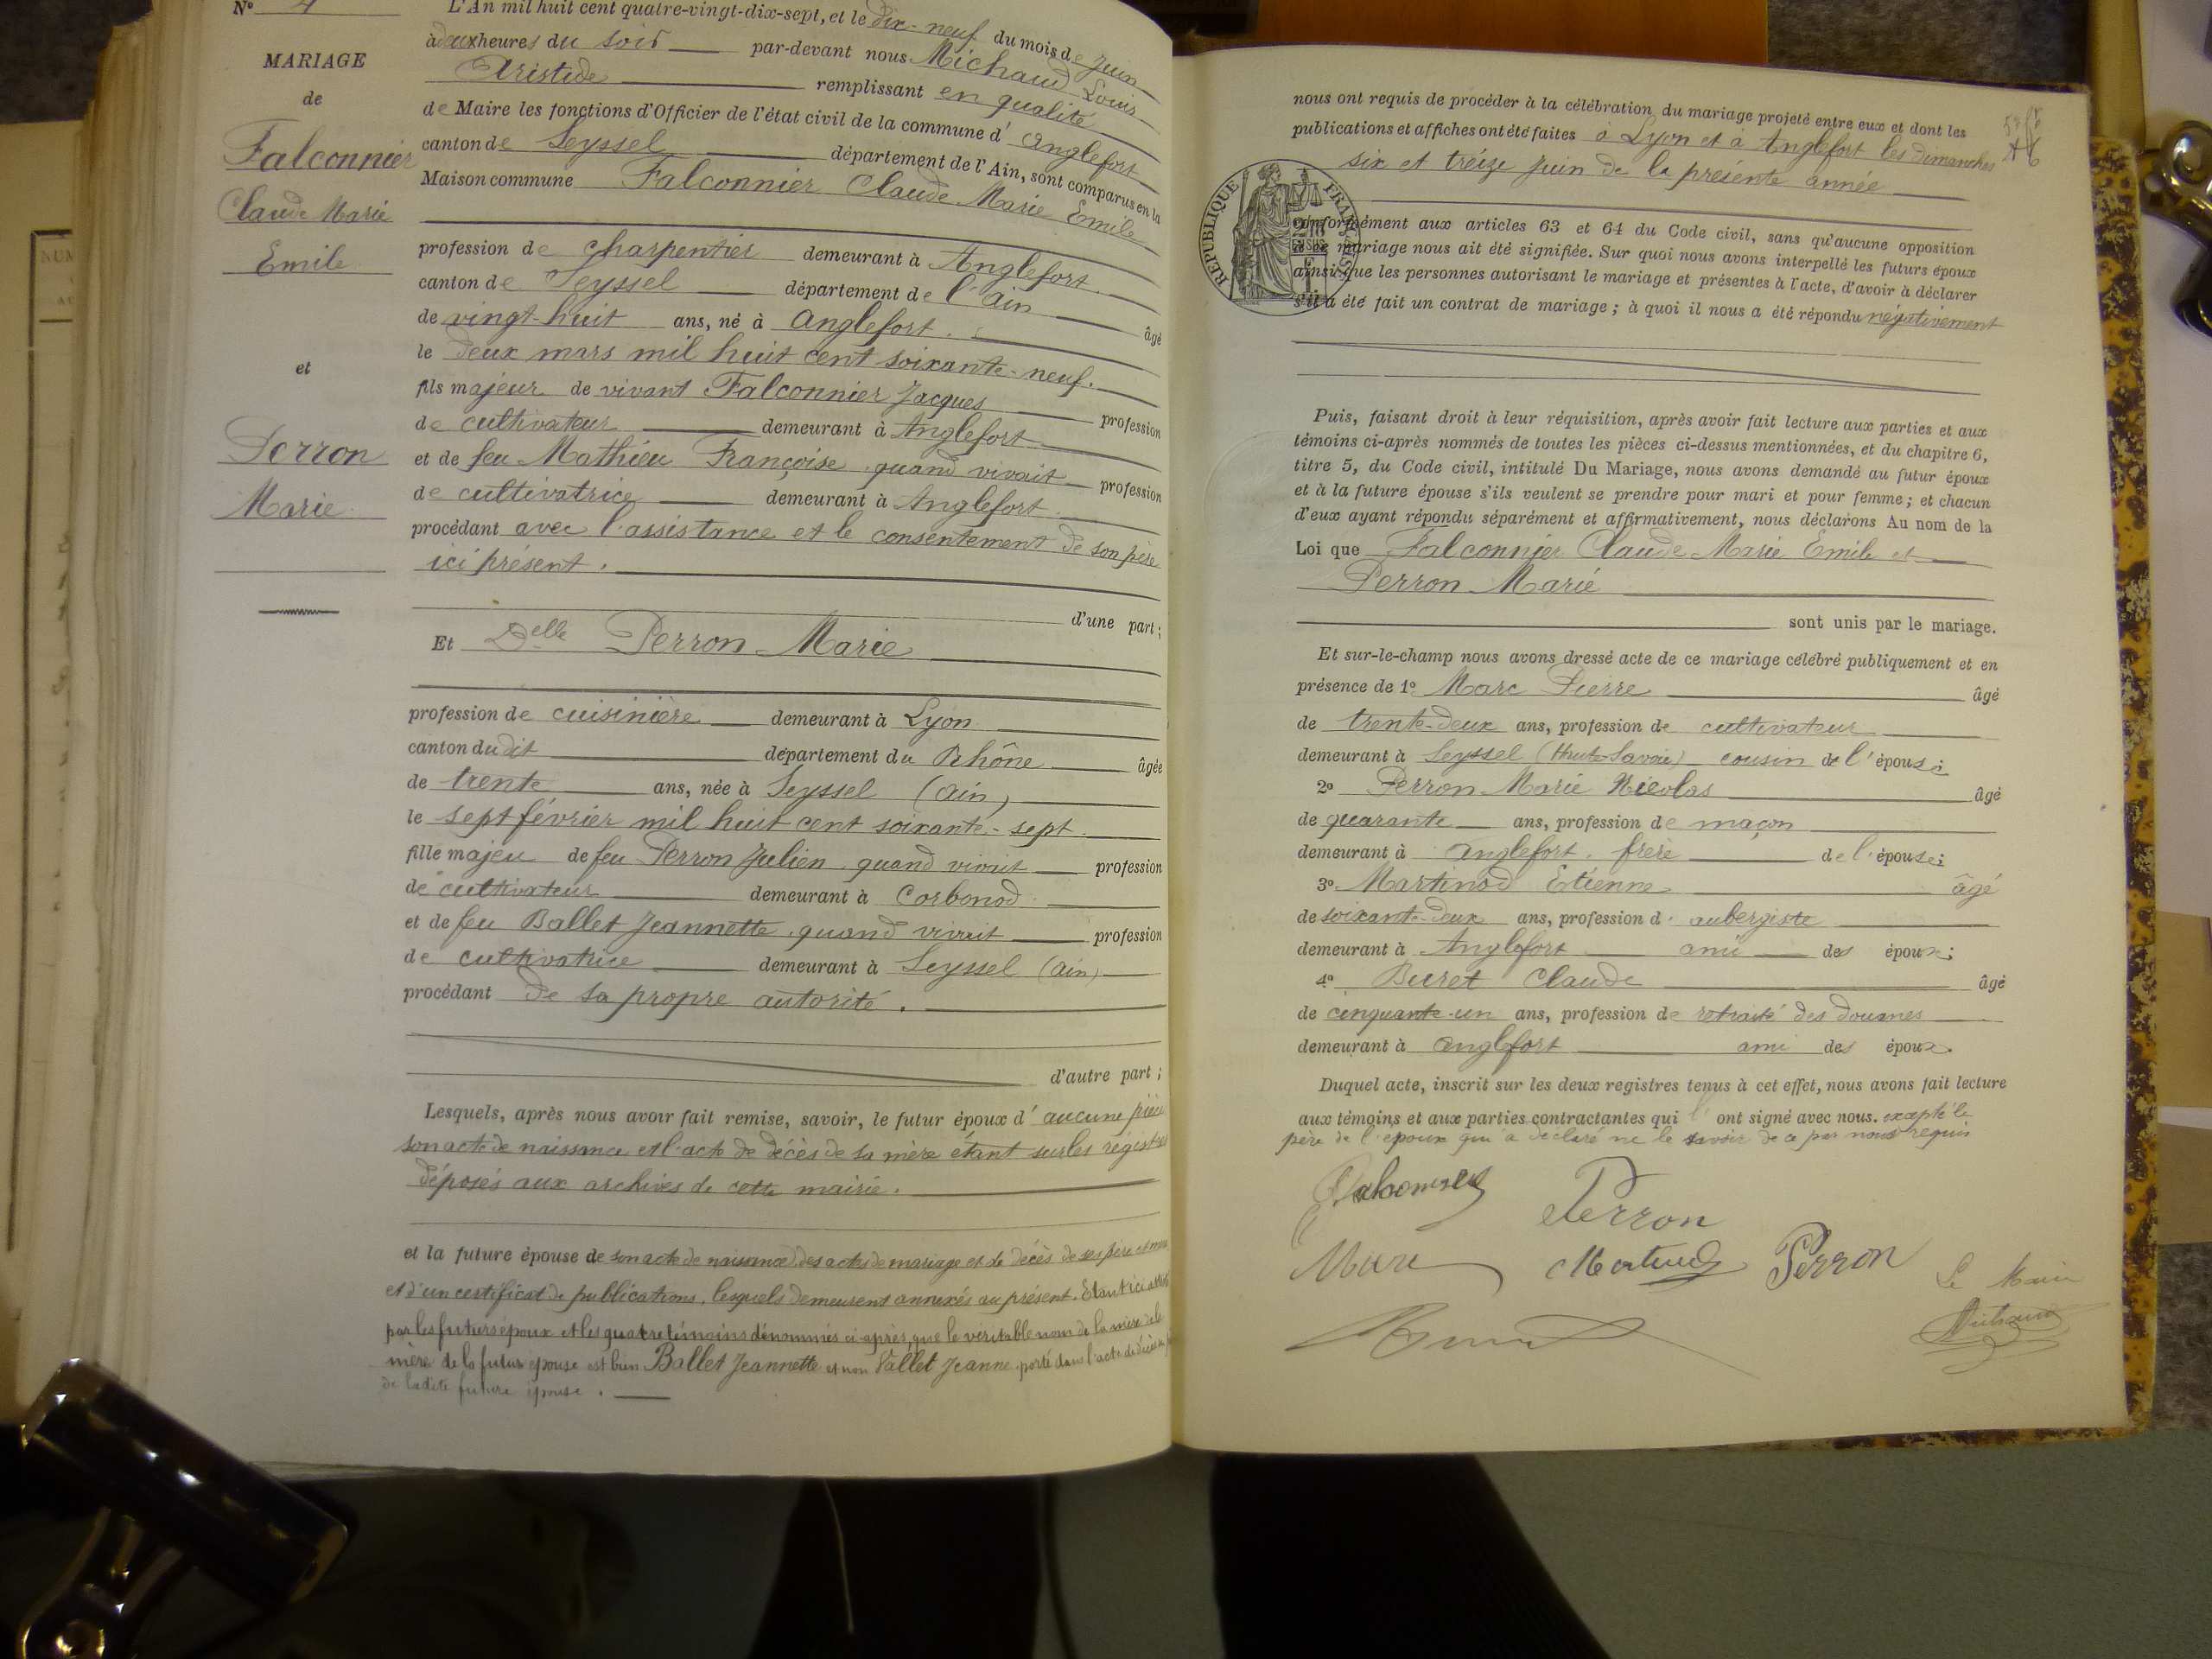 N° 4
MARIAGE
de
Falconnier
Claude Marie
Emile
et
Perron
Marie
L'An mil huit cent quatre-vingt-dix-sept, et le dix-neuf du mois de juin
à deux heures du soir par-devant nous Michaud Louis
Aristide remplissant en qualité
de Maire les fonctions d'Officier de l'état civil de la commune d'Anglefort
canton de Seyssel département de l'Ain, sont comparus en la
Maison commune Falconnier Claude Marie Emile
profession de charpentier demeurant à Anglefort
canton de Seyssel département de l'Ain âgé
de vingt-huit ans, né à Anglefort.
le deux mars mil huit cent soixante-neuf.
fils majeur de vivant Falconnier Jacques profession
de cultivateur demeurant à Anglefort
et de feu Mathieu Françoise quand vivait profession
de cultivatrice demeurant à Anglefort
procédant avec l'assistance et le consentement de son père
ici présent.
d'une part;
Et Delle Perron Marie
profession de cuisinière demeurant à Lyon
canton dudit département du Rhône âgée
de trente ans, née à Seyssel (Ain)
le sept février mil huit cent soixante-sept
fille majeu de feu Perron Julien quand vivait profession
de cultivateur demeurant à Corbonod
et de feu Ballet Jeannette quand vivait profession
de cultivatrice demeurant à Seyssel (Ain)
procédant de sa propre autorité.
d'autre part;
Lesquels, après nous avoir fait remise, savoir, le futur époux d'aucune pièce
son acte de naissance et l'acte de décès de sa mère étant sur les registres
déposés aux archives de cette mairie.
et la future épouse de son acte de naissance, des actes de mariage et de décès de ses père et mère
et d'un certificat de publications, lesquels demeurent annexés au présent. Etant ici attesté
par les futurs époux et les quatre témoins dénommés ci-après, que le véritable nom de la mère de la
mère de la futur epouse est bien Ballet Jeannette et non Vallet Jeanne porté dans l'acte de décès
de ladite future épouse.
nous ont requis de procéder à la célébration du mariage projeté entre eux et dont les
publications et affiches ont été faites à Lyon et à Anglefort les dimanches
six et treize juin de la présente année
RÉPUBLIQUE FRANÇAISE
conformément aux articles 63 et 64 du Code civil, sans qu'aucune opposition
à ce mariage nous ait été signifiée. Sur quoi nous avons interpellé les futurs époux
ainsi que les personnes autorisant le mariage et présentes à l'acte, d'avoir à déclarer
s'il a été fait un contrat de mariage; à quoi il nous a été répondu négativement
Puis, faisant droit à leur réquisition, après avoir fait lecture aux parties et aux
témoins ci-après nommés de toutes les pièces ci-dessus mentionnées, et du chapitre 6,
titre 5, du Code civil, intitulé Du Mariage, nous avons demandé au futur époux
et à la future épouse s'ils veulent se prendre pour mari et pour femme; et chacun
d'eux ayant répondu séparément et affirmativement, nous déclarons Au nom de la
Loi que Falconnier Claude Marie Emile et
Perron Marie
sont unis par le mariage.
Et sur-le-champ nous avons dressé acte de ce mariage célébré publiquement et en
présence de 1° Marc Pierre âgé
de trente-deux ans, profession de cultivateur
demeurant à Seyssel (Haute-Savoie) cousin de l'épouse;
2° Perron Marie Nicolas âgé
de quarante ans, profession de maçon
demeurant à Anglefort. frère de l'épouse;
3° Martinod Etienne âgé
de soixante-deux ans, profession d'aubergiste
demeurant à Anglefort ami des époux;
4° Buret Claude âgé
de cinquante-un ans, profession de retraité des douanes
demeurant à Anglefort ami des époux.
Duquel acte, inscrit sur les deux registres tenus à cet effet, nous avons fait lecture
aux témoins et aux parties contractantes qui l'ont signé avec nous. excepté le
père de l'époux qui a déclaré ne le savoir de ce par nous requis
Falconnier
Perron
Marc Martinod Perron Le Maire
Buret Michaud